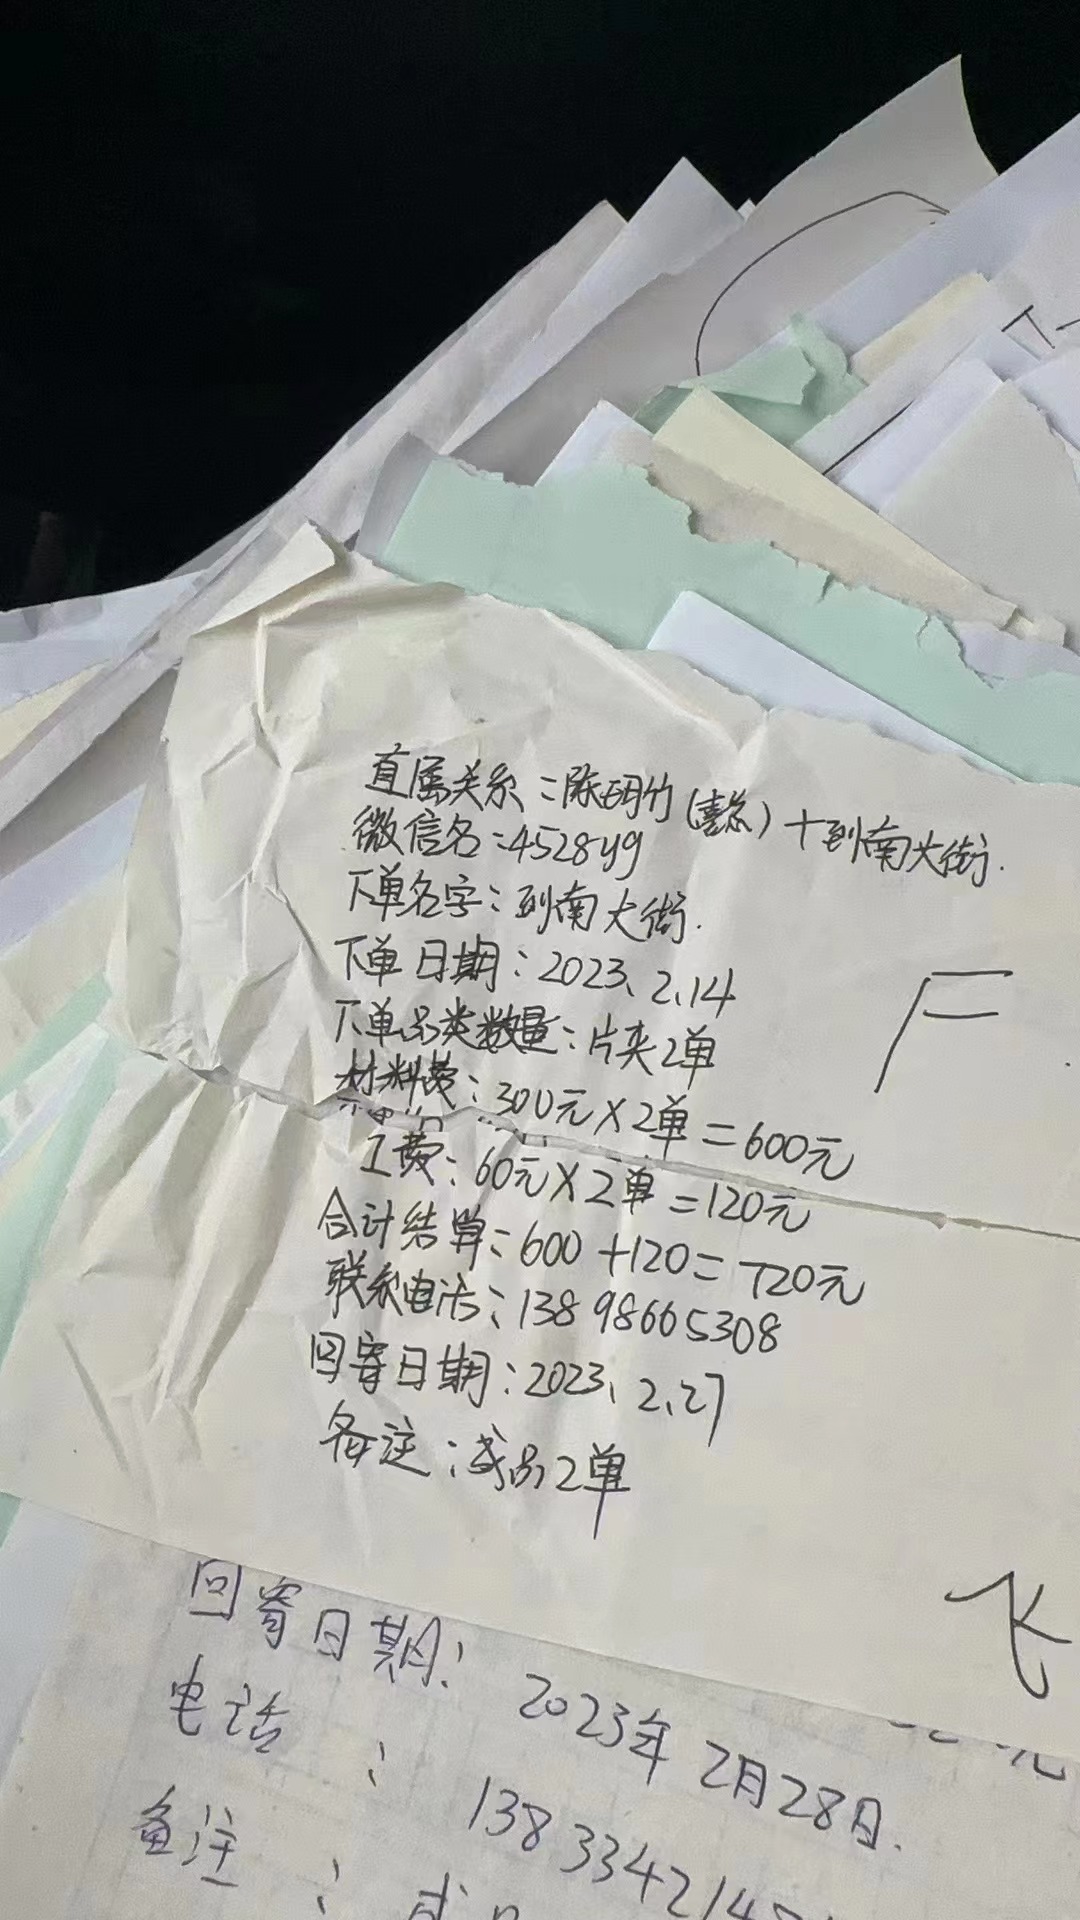 直属关系：陈明竹(熹总)＋到南大街.
微信名：4528yg
下单名字：到南大街.
下单日期：2023、2、14
下单品类数量：片夹2单
材料费：300元×2单＝600元
工费：60元×2单＝120元
合计结算：600＋120＝720元
联系电话：13898665308
回寄日期：2023、2、27
备注：成品2单
回寄日期：2023年2月28日.
电话：138334214
备注：成